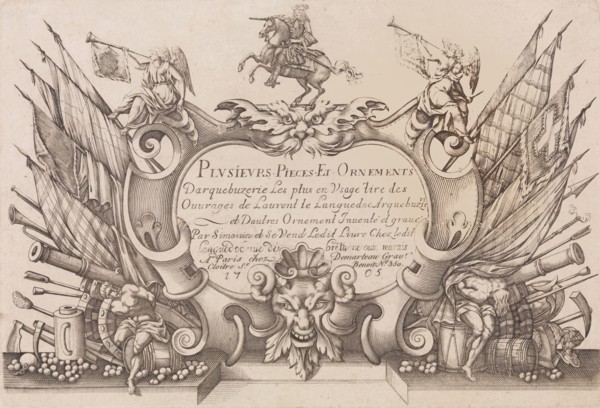 PLVSIEVRS·PIECES·ET·ORNEMENTS
Darquebuzerie Les plus en Vsage tire des
Ouurages de Laurent le Languedoc Arquebuzier
et Dautres Ornement Inuenté et graué
Par Simonin et Se Vend Ledit Liure Chez ledit
rue des
A Paris chez Demarteau Grau.r
Cloitre S.t Benoit N.o 350.
1705